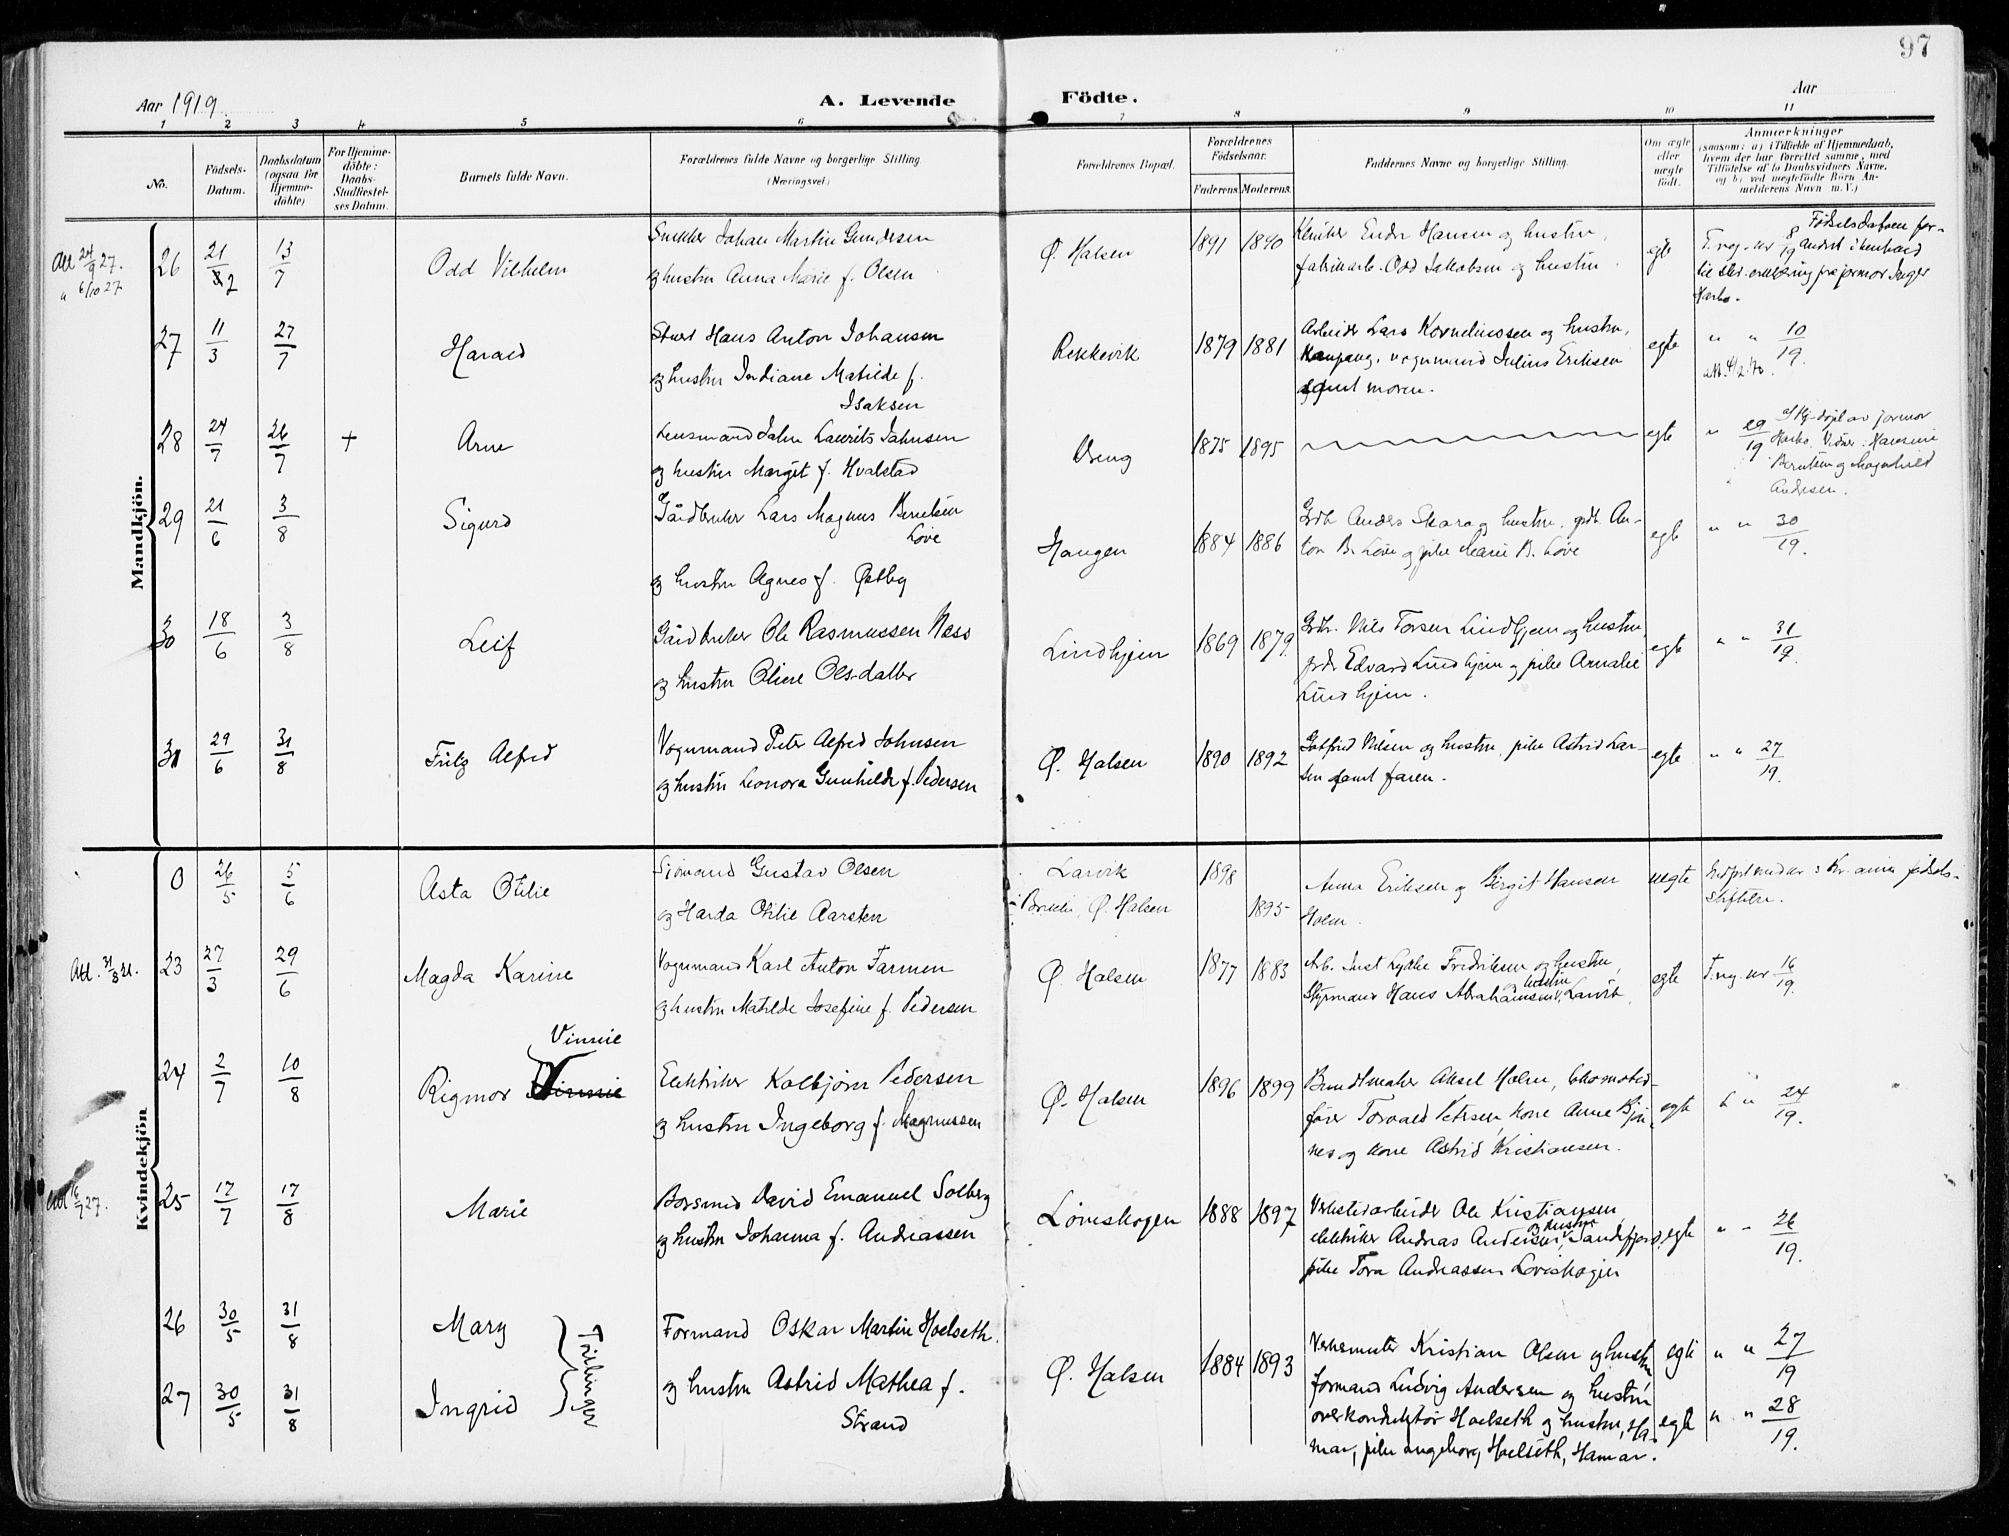 97
Aar 1919
A. Levende
Födte.
Aar
1 2 3 4 5 6 7 8 9 10 11
No.
Födsels-Datum.
Daabsdatum (ogsaa for Hjemme-döbte)
For Hjemme-döbte: Daabs-Stadfæstel-ses Datum.
Barnets fulde Navn.
Forældrenes fulde Navne og borgerlige Stilling. (Næringsvei)
Forældrenes Bopæl.
Forældrenes Födselsaar.
Faderens. Moderens.
Faddernes Navne og borgerlige Stilling.
Om ægte eller uægte födt.
Anmærkninger
(saasom: a) i Tilfælde af Hjemmedaab, hvem der har forrettet samme, med Tilföielse af to Daabsvidners Navne, og b) ved uægtefödte Börn An-melderens Navn m. V.)
Mandkjön.
Att 24/9 27.
" 6/10 27
26 21/2 13/7 Odd Vilhelm
Snekker Johan Martin Gundersen
og hustru Anna Marie f. Olsen
Ø. Halsen 1891 1890
Hansen og hustru,
fabrikarb. Odd Jakobsen og hustru
egte
T. reg. nr 8/19 Fødselsdatoen for-
andret i henhold
til skr. erklæring fra jormor Inger
27 11/3 27/7 Harald
Stuert Hans Anton Johansen
og hustru Indiane Matilde f.
Isaksen
Rekkevik 1879 1881
Arbeider Lars Korneliussen og hustru,
Kaupang, vognmand Julius Eriksen
samt moren.
egte " " 10/19.
28 24/7 26/7 + Arne
Lensmand John Laurits Johnsen
og hustru Margit f. Hvalstad
Vreng 1875 1895
egte " 29/19
Hj-døpt av jormor
Andersen.
29 21/6 3/8 Sigurd
Gårdbruker Lars Magnus Berntsen
Løve
og hustru Agnes f. Østby
Haugen 1884 1886
Grdb. Anders Skara og hustru, grdb. An-
ton B. Løve og pike Marie B. Løve
egte " " 30/19.
30 18/6 3/8 Leif
Gårdbruker Ole Rasmussen Næss
og hustru Oline Olsdatter
Lindhjem 1869 1879
Grdb. Nils Torsen Lindhjem og hustru,
grdb. Edvard Lindhjem og pike Amalie
Lindhjem.
egte " " 31/19.
31 29/6 31/8 Fritz Alfred
Vognmand Peter Alfred Johnsen
og hustru Leonora Gunhilde f. Pedersen
Ø. Halsen 1890 1892
Gotfred Nilsen og hustru, pike Astrid Lar-
sen samt faren.
egte " " 27/19.
Kvindekjön
0 26/5 5/6 Asta Otilie
Sjömand Gustav Olsen
og Harda Otilie Aarsten
Larvik 1898
Ø. Halsen 1895
Anna Eriksen og Birgit Hansen
Holm.
uegte
fødsels-
stiftelse.
Att. 31/8 21.
23 27/3 29/6 Magda Karine
Vognmand Karl Anton Farmen
og hustru Matilde Josefine f. Pedersen
Ø. Halsen 1877 1883
Arb. Just Lytke Fredriksen og hustru,
Styrmand Hans Abrahamsen og hustru, Larvik.
egte T. reg. nr 16/19.
24 2/7 10/8 Rigmor Vinnie
Elektriker Kolbjørn Pedersen
og hustru Ingeborg f. Magnussen
Ø. Halsen 1896 1899
Buntmaker Aksel Holm, lokomotiv-
fører Torvald Petersen, kone Anne Bjøn-
nes og kone Astrid Kristiansen.
egte " " 24/19.
Att 16/7 27.
25 17/7 17/8 Marie
David Emanuel Solberg
og hustru Johanna f. Andreassen
Løveskogen 1888 1897
Verkstedarbeider Ole Kristiansen,
elektriker Andreas Andersen og hustru, Sandefjord,
pike Tora Andreassen Løveskogen
egte " " 26/19.
26 30/5 31/8 Mary
27 30/5 31/8 Ingrid
Trillinger
Formand Oskar Martin Hoelseth
og hustru Astrid Mathea f.
Strand
Ø. Halsen 1884 1893
Verksmester Kristian Olsen og hustru
formand Ludvig Andersen og hustru
overkonduktør Hoelseth og hustru, Ha-
mar, pike Ingeborg Hoelseth, Hamar.
egte " " 27/19
egte " " 28/19.